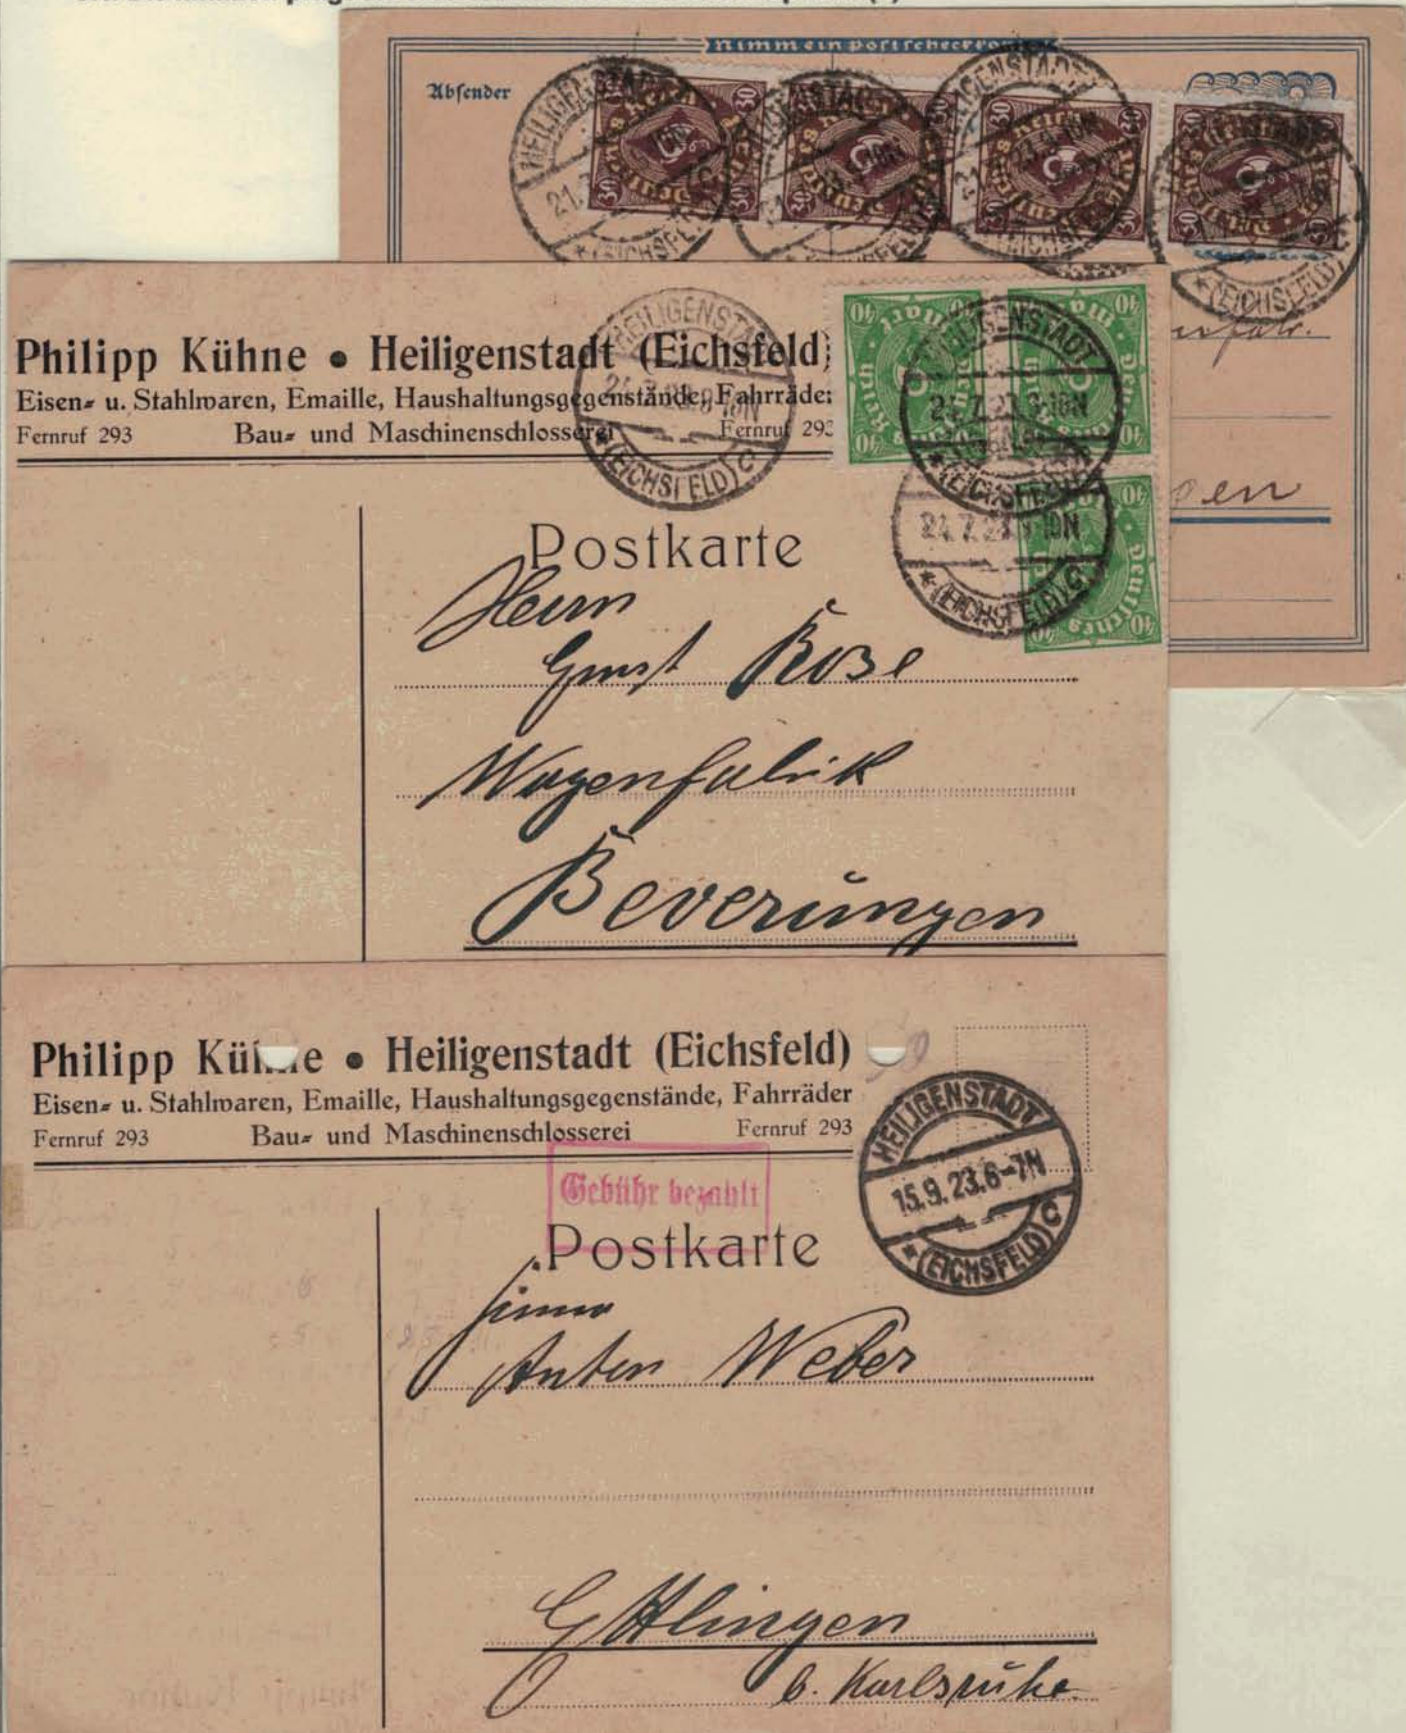 Nimm ein Postscheckkonto
Absender
HEILIGENSTADT
21.
(EICHSFELD)
30 Deutsches Reich 30
en
Philipp Kühne • Heiligenstadt (Eichsfeld)
Eisen- u. Stahlwaren, Emaille, Haushaltungsgegenstände, Fahrräder
Fernruf 293 Bau- und Maschinenschlosserei Fernruf 293
HEILIGENSTADT
(EICHSFELD) C
40 Deutsches Reich 40
HEILIGENSTADT
(EICHSFELD) C
Postkarte
Herrn
Ernst Rose
Wagenfabrik
Beverungen
Philipp Kühne • Heiligenstadt (Eichsfeld)
Eisen- u. Stahlwaren, Emaille, Haushaltungsgegenstände, Fahrräder
Fernruf 293 Bau- und Maschinenschlosserei Fernruf 293
Gebühr bezahlt
HEILIGENSTADT
15.9.23.6-7N
* (EICHSFELD) C
Postkarte
Firma
Anton Weber
Ettlingen
b. Karlsruhe